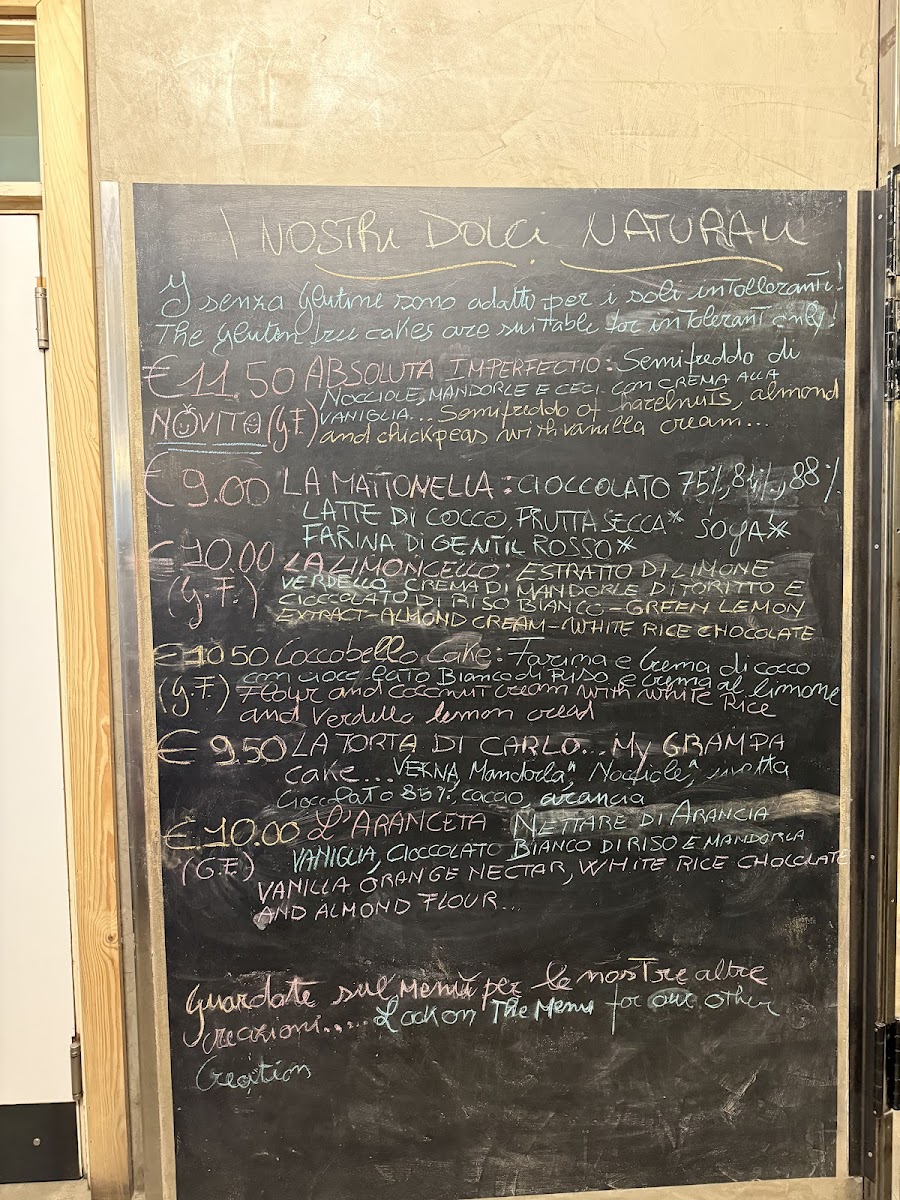 I NOSTRI DOLCI NATURALI
I senza glutine sono adatti per i soli intolleranti!
The gluten free cakes are suitable for intolerant only!
€ 11.50 ABSOLUTA IMPERFECTIO: Semifreddo di
NOCCIOLE, MANDORLE E CECI con CREMA ALLA
NOVITÀ (G.F.) VANIGLIA... Semifreddo of hazelnuts, almond
and chickpeas with vanilla cream...
€ 9.00 LA MATTONELLA: CIOCCOLATO 75%, 84%, 88%
LATTE DI COCCO, FRUTTA SECCA* SOYA*
FARINA DI GENTIL ROSSO*
€ 10.00 LA LIMONCELLO: ESTRATTO DI LIMONE
(G.F.) VERDELLO CREMA DI MANDORLE DI TORITTO E
CIOCCOLATO DI RISO BIANCO - GREEN LEMON
EXTRACT - ALMOND CREAM - WHITE RICE CHOCOLATE
€ 10.50 Coccobello Cake: Farina e Crema di cocco
con cioccolato Bianco di Riso e crema al limone
(G.F.) Flour and coconut cream with white Rice
and Verdello lemon cread
€ 9.50 LA TORTA DI CARLO... My GRAMPA
cake... Mandorla, Nocciole,
Cioccolato 85%, cacao, arancia
€ 10.00 L'ARANCETA NETTARE DI ARANCIA
(G.F.) VANIGLIA, CIOCCOLATO BIANCO DI RISO E MANDORLA
VANILLA ORANGE NECTAR, WHITE RICE CHOCLATE
AND ALMOND FLOUR...
Guardate sul menù per le nostre altre
creazioni..... Look on The Menu for our other
Creation